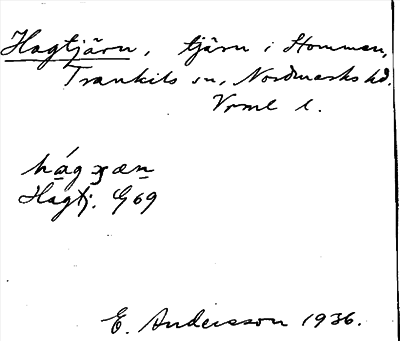 Hagtjärn, tjärn i Hommen,
Trankils sn, Nordmarks hd.
Vrml l.
hágɣæn
Hagtj. G69
E. Andersson 1936.